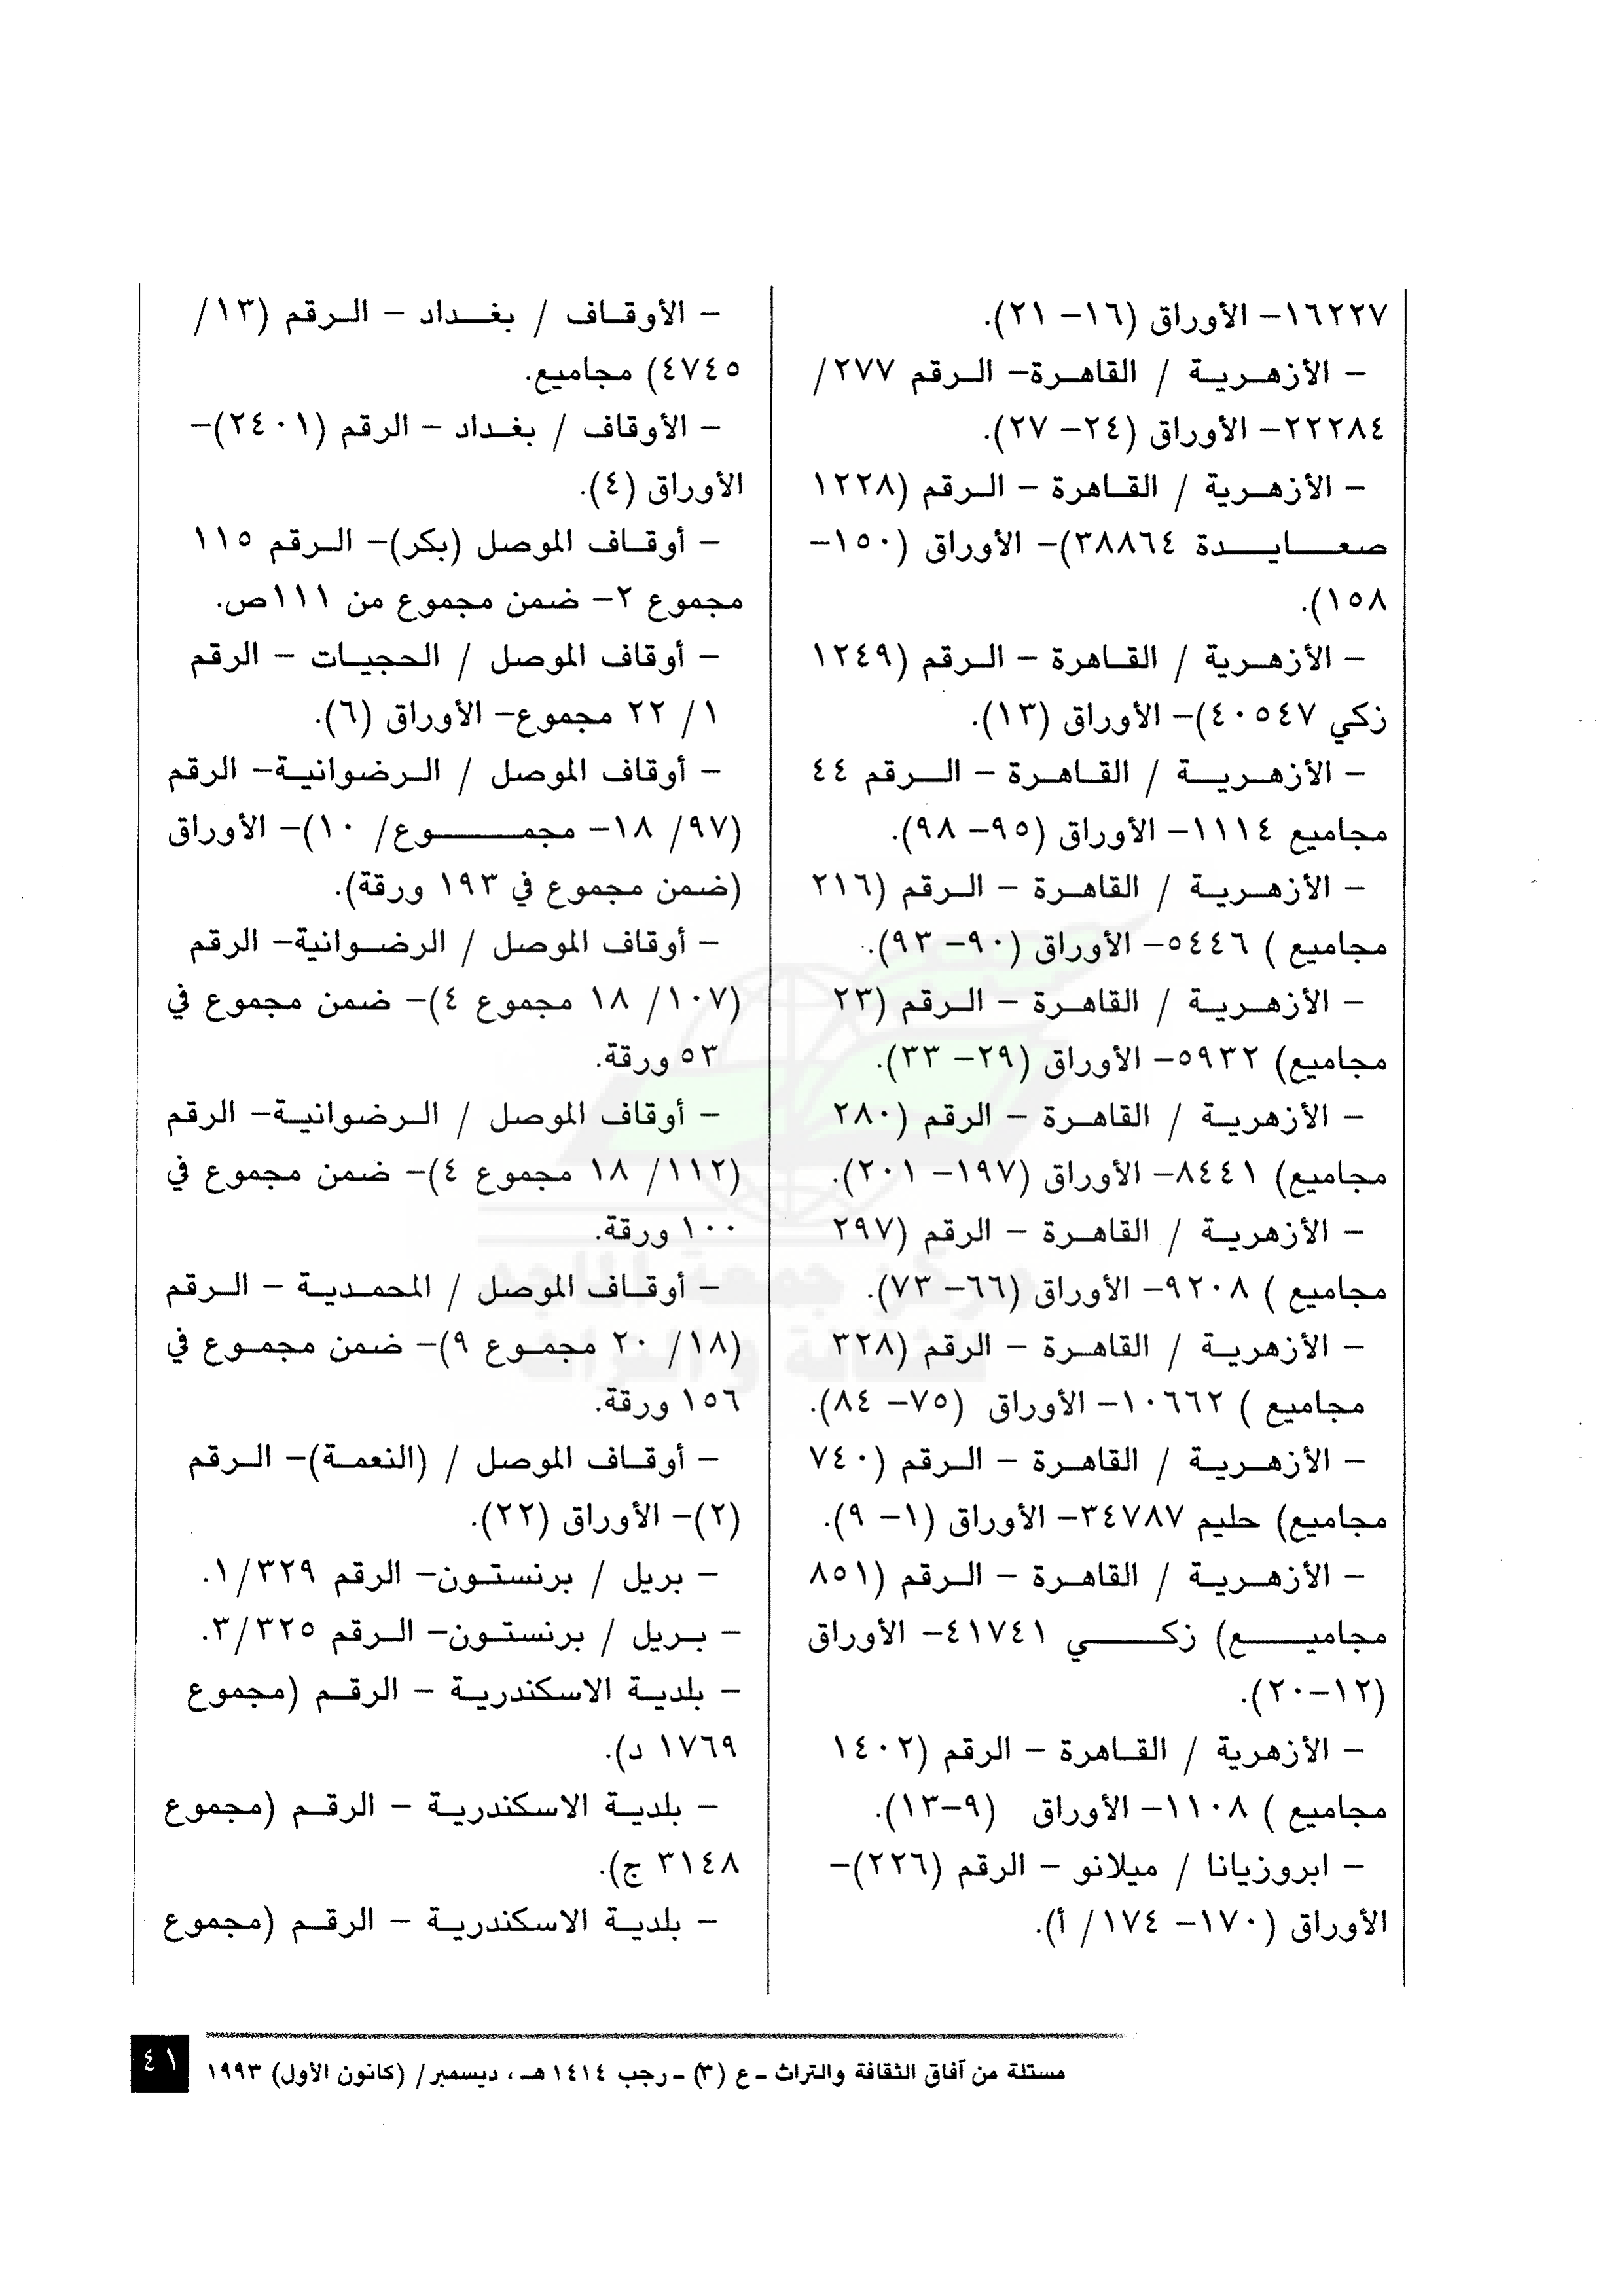 ١٦٢٢٧– الأوراق (١٦– ٢١).
– الأزهرية / القاهرة– الرقم ٢٧٧/
٢٢٢٨٤– الأوراق (٢٤– ٢٧).
– الأزهرية / القاهرة – الرقم (١٢٢٨
صعايدة ٣٨٨٦٤)– الأوراق (١٥٠–
١٥٨).
– الأزهرية / القاهرة – الرقم (١٢٤٩
زكي ٤٠٥٤٧)– الأوراق (١٣).
– الأزهرية / القاهرة – الرقم ٤٤
مجاميع ١١١٤– الأوراق (٩٥– ٩٨).
– الأزهرية / القاهرة – الرقم (٢١٦
مجاميع ) ٥٤٤٦– الأوراق (٩٠– ٩٣).
– الأزهرية / القاهرة – الرقم (٢٣
مجاميع) ٥٩٣٢– الأوراق (٢٩– ٣٣).
– الأزهرية / القاهرة – الرقم (٢٨٠
مجاميع) ٨٤٤١– الأوراق (١٩٧– ٢٠١).
– الأزهرية / القاهرة – الرقم (٢٩٧
مجاميع ) ٩٢٠٨– الأوراق (٦٦– ٧٣).
– الأزهرية / القاهرة – الرقم (٣٢٨
مجاميع ) ١٠٦٦٢– الأوراق (٧٥– ٨٤).
– الأزهرية / القاهرة – الرقم (٧٤٠
مجاميع) حليم ٣٤٧٨٧– الأوراق (١– ٩).
– الأزهرية / القاهرة – الرقم (٨٥١
مجاميع) زكي ٤١٧٤١– الأوراق
(١٢–٢٠).
– الأزهرية / القاهرة – الرقم (١٤٠٢
مجاميع ) ١١٠٨– الأوراق (٩–١٣).
– ابروزيانا / ميلانو – الرقم (٢٢٦)–
الأوراق (١٧٠– ١٧٤/ أ).
– الأوقاف / بغداد – الرقم (١٣/
٤٧٤٥) مجاميع.
– الأوقاف / بغداد – الرقم (٢٤٠١)–
الأوراق (٤).
– أوقاف الموصل (بكر)– الرقم ١١٥
مجموع ٢– ضمن مجموع من ١١١ص.
– أوقاف الموصل / الحجيات – الرقم
١/ ٢٢ مجموع– الأوراق (٦).
– أوقاف الموصل / الرضوانية– الرقم
(٩٧/ ١٨– مجموع/ ١٠)– الأوراق
(ضمن مجموع في ١٩٣ ورقة).
– أوقاف الموصل / الرضوانية– الرقم
(١٠٧/ ١٨ مجموع ٤)– ضمن مجموع في
٥٣ ورقة.
– أوقاف الموصل / الرضوانية– الرقم
(١١٢/ ١٨ مجموع ٤)– ضمن مجموع في
١٠٠ ورقة.
– أوقاف الموصل / المحمدية – الرقم
(١٨/ ٢٠ مجموع ٩)– ضمن مجموع في
١٥٦ ورقة.
– أوقاف الموصل / (النعمة)– الرقم
(٢)– الأوراق (٢٢).
– بريل / برنستون– الرقم ١/٣٢٩.
– بريل / برنستون– الرقم ٣/٣٢٥.
– بلدية الاسكندرية – الرقم (مجموع
١٧٦٩ د).
– بلدية الاسكندرية – الرقم (مجموع
٣١٤٨ ج).
– بلدية الاسكندرية – الرقم (مجموع
مركز جمعة الماجد
للثقافة والتراث
مستلة من آفاق الثقافة والتراث ـ ع (٣) ـ رجب ١٤١٤ هـ ، ديسمبر / (كانون الأول) ١٩٩٣
٤١